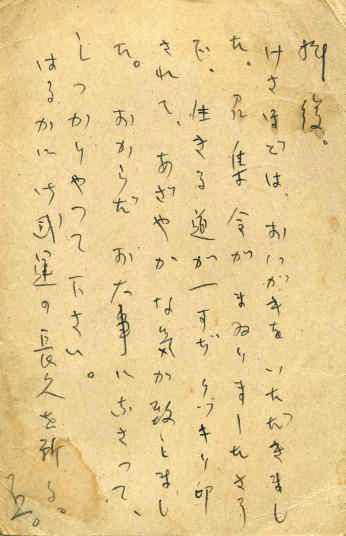 拝復。
けさほどは、おハガキをいただきまし
た。召集令がまゐりましたさう
で、生きる道が一すぢクツキリ印
されて、あざやかな気が致しまし
た。おからだお大事になさつて、
しつかりやつて下さい。
はるかに御武運の長久を祈る。